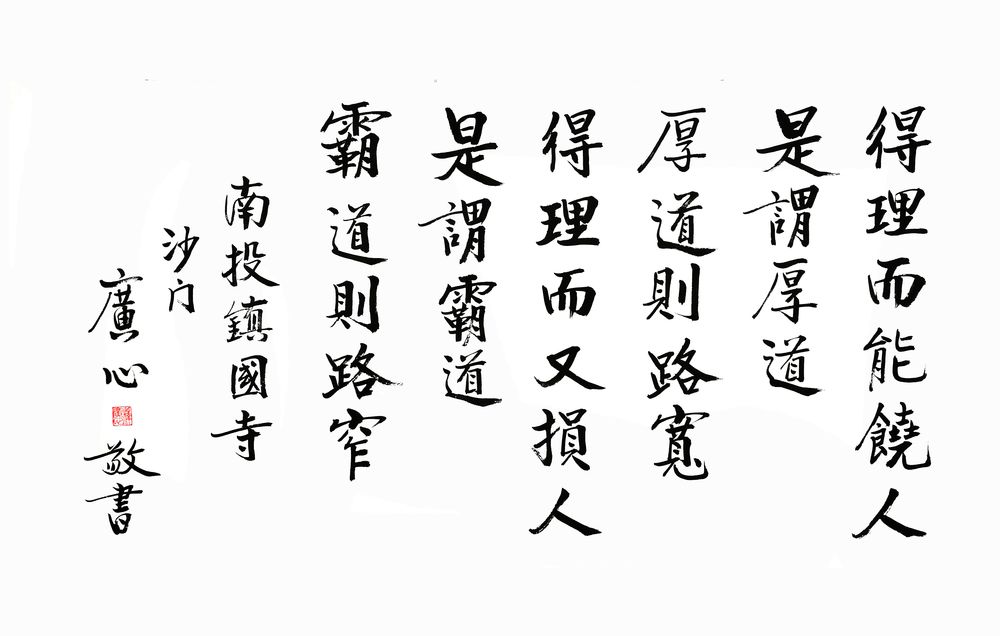 得理而能饒人
是謂厚道
厚道則路寬
得理而又損人
是謂霸道
霸道則路窄
南投鎮國寺
沙门
廣心
敬書